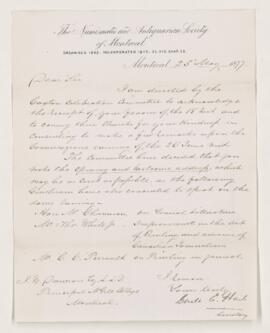 The Numismatic and Antiquarian Society
of Montreal.
ORGANISED 1862. INCORPORATED 1870.
Montreal, 25 May 1877
Dear Sir
I am directed by the
Caxton Celebration Committee to acknowledge
the receipt of your favor of the 18 inst and
to convey their thanks for your kindness in
consenting to make a few remarks upon the
evening of the 26 June next
The Committee have decided that you
make the Opening and welcome address, which
may be as brief as possible as the following
Gentlemen have also consented to speak on the
same evening
Hon Mr Chauveau on
Mr Thos White Jr Improvements in the art
of Printing and some of
Canadian Journalism
Mr C. C. Perrault on Printing in general
I remain
Yours truly
J W Dawson Esq LL.D
Principal McGill College
Montreal
Gerald E. Hart
Secretary